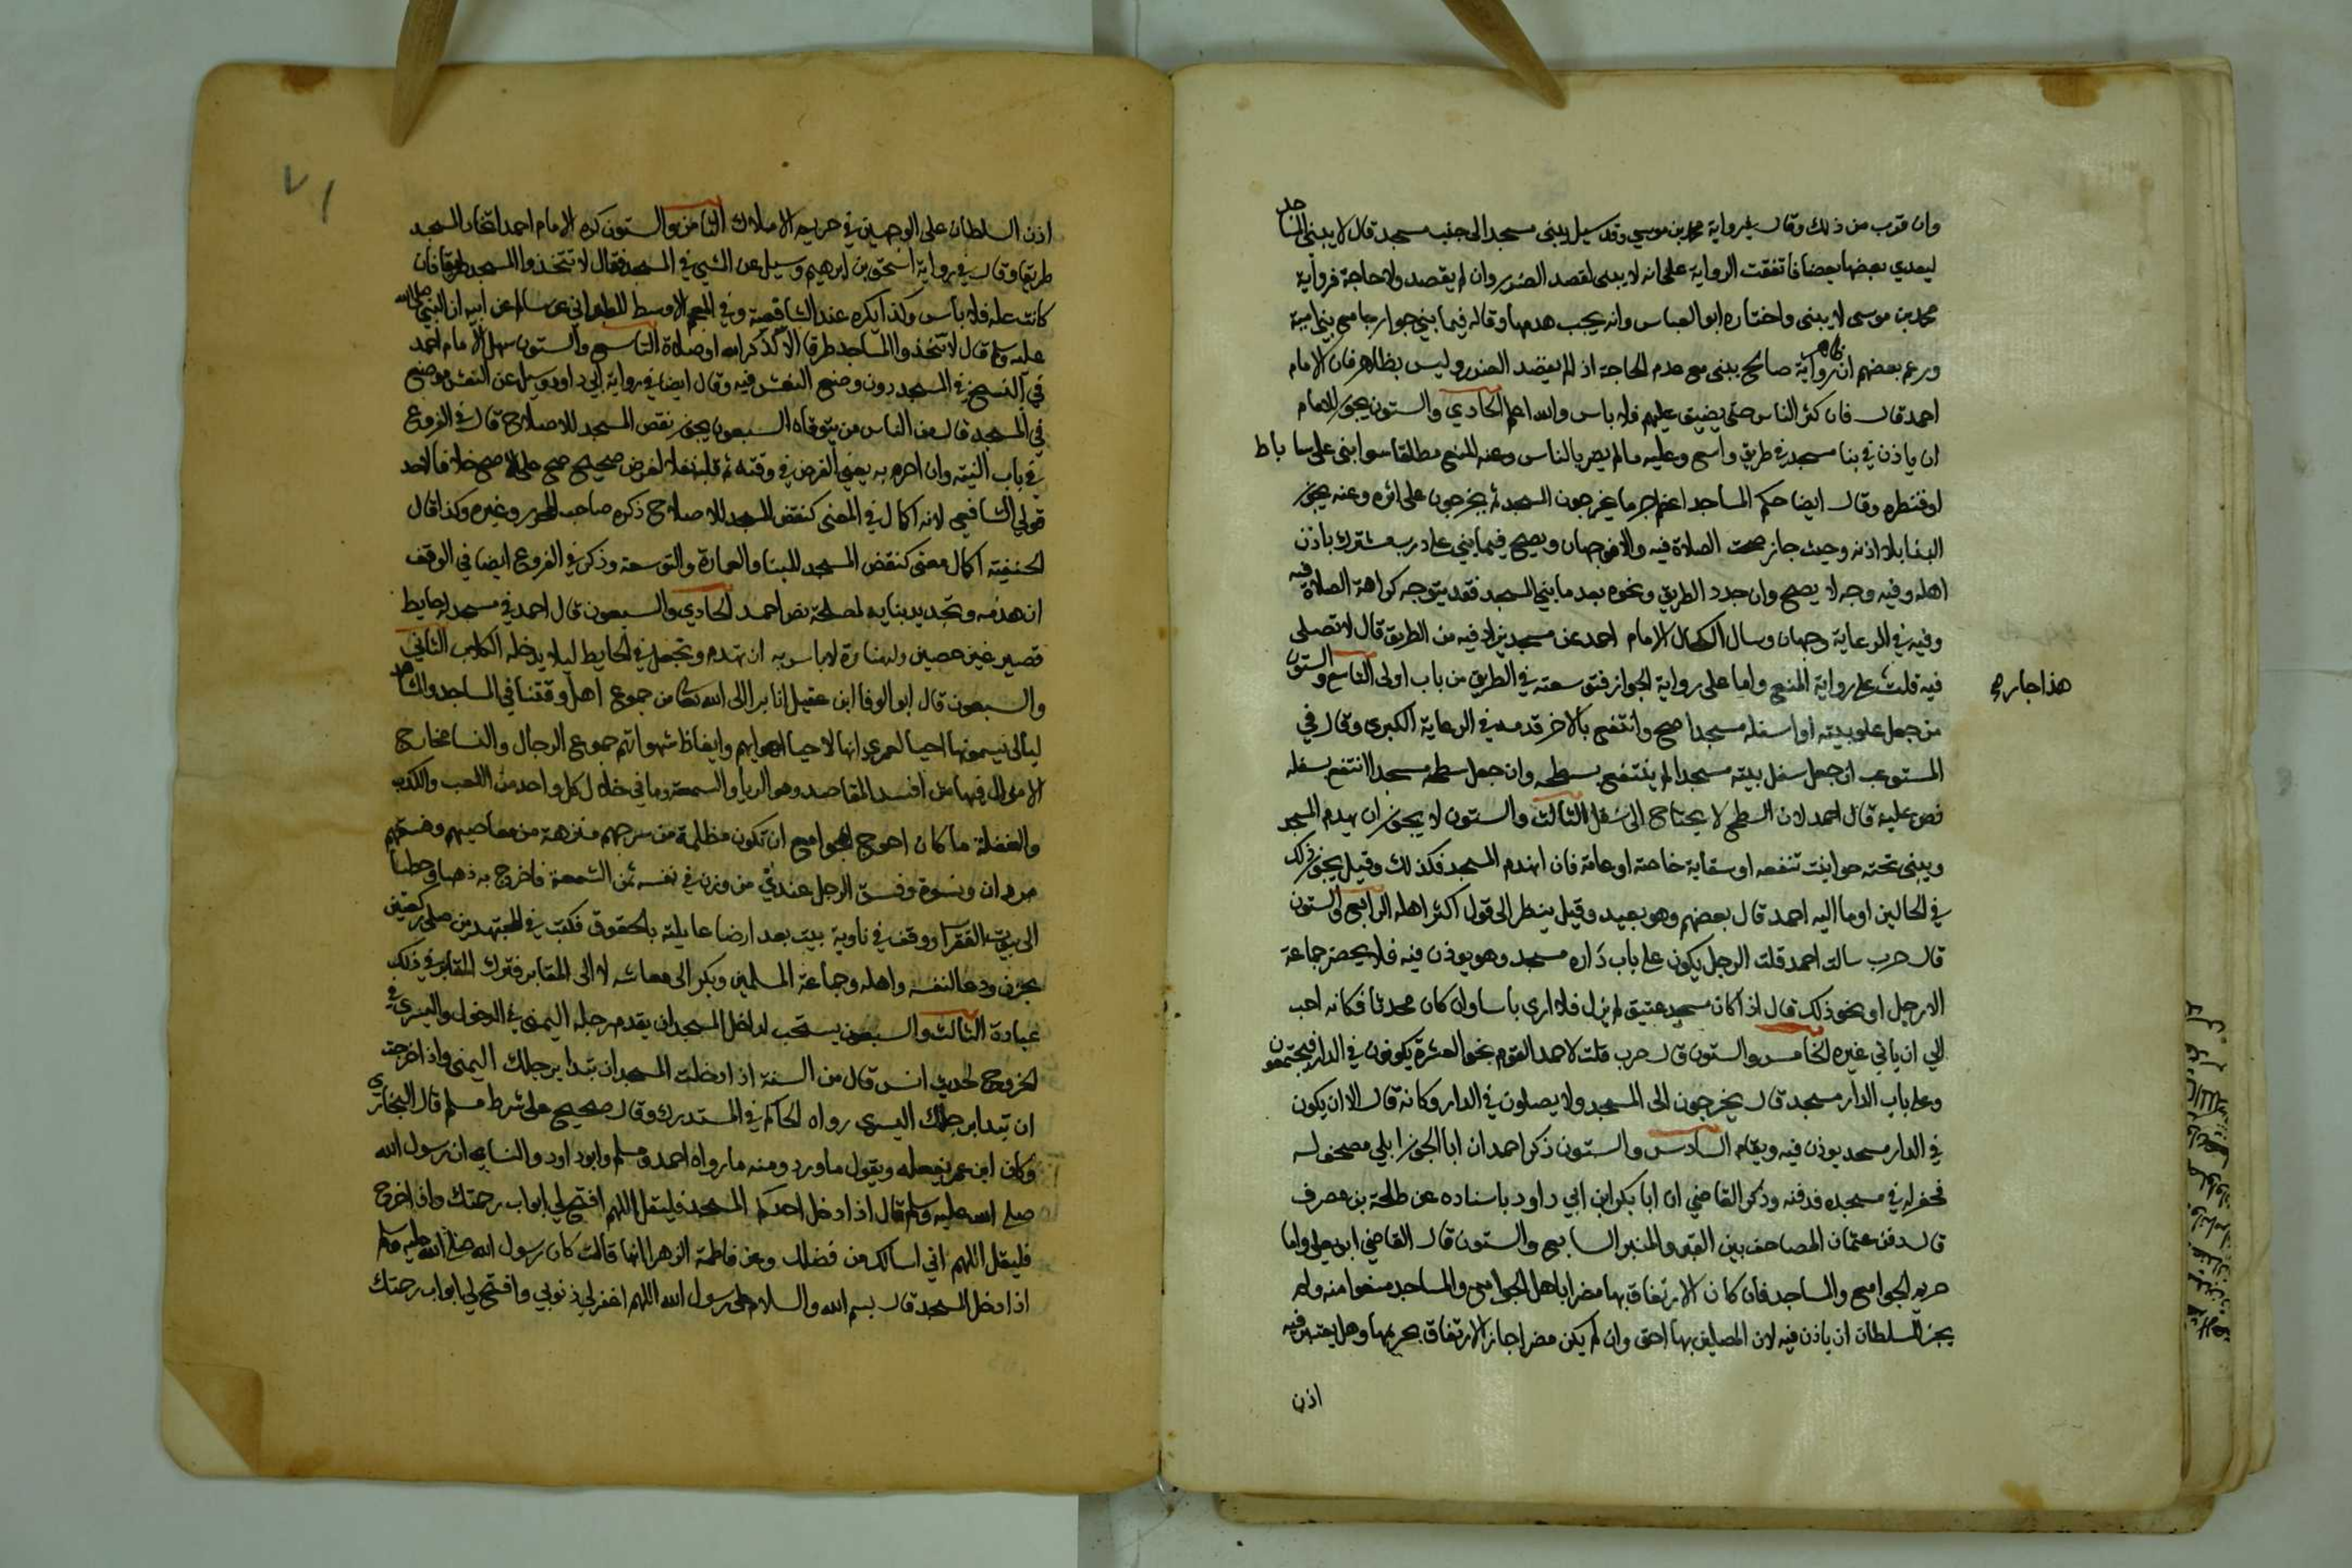 وان قرب من ذلك وقال في رواية محمد بن موسي وقد سيل يبنى مسجد الى جنب مسجد قال لا يبنى المساجد
ليعدي بعضها بعضا فاتفقت الرواية على انه لا يبنى لقصد الضرر وان لم يقصد ولا حاجة فرواية
محمد بن موسى لا يبنى واختاره ابو العباس وانه يجب هدمها وقاله فيما بني جوار جامع بني امية
وزعم بعضهم ان ظاهر رواية صالح يبنى مع عدم الحاجة اذ لم يقصد الضرر وليس بظاهر فان الامام
احمد قال فان كثر الناس حتى يضيق عليهم فلا باس والله اعلم الحادي والستون يجوز للامام
ان ياذن في بنا مسجد في طريق واسع وعليه مالم يضر بالناس وعنه المنع مطلقا سوا بنى على ساباط
او قنطره وقال ايضا حكم المساجد اعظم جرما يخرجون المسجد ثم يخرجون على اثره وعنه يجوز
البنا بلا اذنه وحيث جاز صحت الصلاة فيه والا فوجهان ويصح فيما بني على درب مشترك باذن
اهله وفيه وجه لا يصح وان جدد الطريق ونحوه بعد ما بني المسجد فقد يتوجه كراهة الصلاة فيه
وفيه في الرعاية وجهان وسال الكحال الامام احمد عن مسجد يزاد فيه من الطريق قال لا تصلى
فيه قلت على رواية المنع واما على رواية الجواز فتوسعته في الطريق من باب اولى التاسع والستون
هذا جار مح
من جعل علو بيته او اسفله مسجدا صح وانتفع بالاخر قدمه في الرعاية الكبرى وقال في
المستوعب ان جعل سفل بيته مسجدا لم ينتفع بسطحه وان جعل سطحه مسجدا انتفع بسفله
نص عليه قال احمد لان السطح لا يحتاج الى سفل الثالث والستون لا يجوز ان يهدم المسجد
ويبنى تحته حوانيت تنفعه او سقاية خاصة او عامة فان انهدم المسجد فكذلك وقيل يجوز ذلك
في الحالين اوما اليه احمد قال بعضهم وهو بعيد وقيل ينظر الى قول اكثر اهله الرابع والستون
قال حرب سالت احمد قلت الرجل يكون على باب داره مسجد وهو يوذن فيه فلا يحضر جماعة
الا رجل او نحو ذلك قال اذا كان مسجد عتيق لم يزل فلا ارى باسا وان كان محدثا فكانه احب
الي ان ياتي غيره الخامس والستون قال حرب قلت لاحمد القوم نحو العشرة يكونون في الدار فيجتمعون
وعلى باب الدار مسجد قال يخرجون الى المسجد ولا يصلون في الدار وكانه قال الا ان يكون
في الدار مسجد يوذن فيه ويقام السادس والستون ذكر احمد ان ابا الجوزا بلي مصحف له
فحفر له في مسجده فدفنه وذكر القاضي ان ابا بكر ابن ابي داود باسناده عن طلحة بن مصرف
قال دفن عثمان المصاحف بين القبر والمنبر السابع والستون قال القاضي ابو يعلى واما
حريم الجوامع والمساجد فان كان الارتفاق بها مضرا باهل الجوامع والمساجد منعوا منه ولم
يجز للسلطان ان ياذن فيه لان المصلين بها احق وان لم يكن مضرا جاز الارتفاق بحريمها وهل يعتبر فيه
اذن
٧١
اذن السلطان على الوجهين في حريم الاملاك الثامن والستون كره الامام احمد اتخاذ المسجد
طريقا وقال في رواية اسحق بن ابرهيم وسيل عن المشي في المسجد فقال لا تتخذوا المسجد طريقا فان
كانت علة فلا باس وكذا يكره عند الشافعية وفي المعجم الاوسط للطبراني عن سالم عن ابيه ان النبي صلى الله
عليه وسلم قال لا تتخذوا المساجد طرقا الا لذكر الله او صلاة التاسع والستون سهل الامام احمد
في النسخ في المسجد دون وضع النعش فيه وقال ايضا في رواية ابي داود وسيل عن النعش موضع
في المسجد قال من الناس من يتوقاه السبعون يجوز نقض المسجد للاصلاح قال في الفروع
في باب النية وان احرم به يعني الفرض في وقته ثم قلبه نفلا لغرض صحيح صح على الاصح خلافا لاحد
قولي الشافعي لانه اكمال في المعنى كنقض المسجد للاصلاح ذكره صاحب المحرر وغيره وكذا قال
الحنفية اكمال معنى كنقض المسجد للبنا والعمارة والتوسعة وذكر في الفروع ايضا في الوقف
ان هدمه وتجديد بنايه لمصلحة نص احمد الحادي والسبعون قال احمد في مسجد له حايط
قصير غير حصين وله منارة لا باس به ان تهدم وتجعل في الحايط ليلا يدخله الكلاب الثاني
والسبعون قال ابو الوفا ابن عقيل انا ابرا الى الله تعا من جموع اهل وقتنا في المساجد والمشاهد
ليالي يسمونها احيا لعمري انها لاحيا اهوايهم وايقاظ شهواتهم جموع الرجال والنسا مخارج
الاموال فيها من افسد المقاصد وهو الريا والسمعة وما في خلال كل واحد من اللعب والكذب
والغفلة ما كان احوج الجوامع ان تكون مظلمة من سرجهم منزهة من معاصيهم وفسقهم
مردان ونسوة وفسق الرجل عندي من وزن في نفسه ثمن الشمعة فاخرج به ذهبا وحطبا
الى بيوت الفقرا ووقف في زاوية بيت بعد ارضا عايلته بالحقوق فكتب في المجتهدين صلى ركعتين
بحزن ودعا لنفسه واهله وجماعة المسلمين وبكر الى معاشه لا الى المقابر فترك المقابر في ذلك
عبادة الثالث والسبعون يستحب لداخل المسجد ان يقدم رجله اليمنى في الدخول واليسرى في
الخروج لحديث انس قال من السنة اذا دخلت المسجد ان تبدا برجلك اليمنى واذا خرجت
ان تبدا برجلك اليسرى رواه الحاكم في المستدرك وقال صحيح على شرط مسلم قال البخاري
وكان ابن عمر يفعله ويقول ما ورد ومنه ما رواه احمد ومسلم وابو داود والنسايي ان رسول الله
صلى الله عليه وسلم قال اذا دخل احدكم المسجد فليقل اللهم افتح لي ابواب رحمتك واذا خرج
فليقل اللهم اني اسالك من فضلك وعن فاطمة الزهرا انها قالت كان رسول الله صلى الله عليه وسلم
اذا دخل المسجد قال بسم الله والسلام على رسول الله اللهم اغفر لي ذنوبي وافتح لي ابواب رحمتك